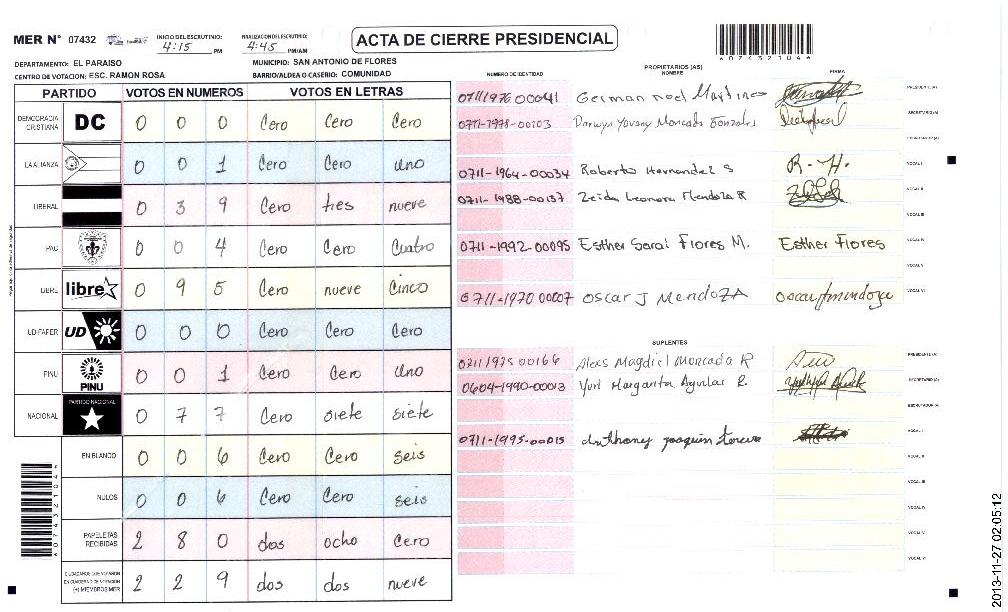 MER N° 07432
INICIO DEL ESCRUTINIO: 4:15 PM
FINALIZACION DEL ESCRUTINIO: 4:45 PM/AM
ACTA DE CIERRE PRESIDENCIAL
DEPARTAMENTO: EL PARAISO
MUNICIPIO: SAN ANTONIO DE FLORES
CENTRO DE VOTACION: ESC. RAMON ROSA
BARRIO/ALDEA O CASERIO: COMUNIDAD
PARTIDO VOTOS EN NUMEROS VOTOS EN LETRAS
DEMOCRACIA CRISTIANA DC 0 0 0 Cero Cero Cero
LA ALIANZA 0 0 1 Cero Cero uno
LIBERAL 0 3 9 Cero tres nueve
PAC 0 0 4 Cero Cero Cuatro
LIBRE libre 0 9 5 Cero nueve Cinco
UD-FAPER UD 0 0 0 Cero Cero Cero
PINU PINU 0 0 1 Cero Cero Uno
NACIONAL PARTIDO NACIONAL 0 7 7 Cero siete siete
EN BLANCO 0 0 6 Cero Cero seis
NULOS 0 0 6 Cero Cero seis
PAPELETAS RECIBIDAS 2 8 0 dos ocho Cero
CIUDADANOS QUE VOTARON EN CUADERNO DE VOTACION (+) MIEMBROS MER 2 2 9 dos dos nueve
NUMERO DE IDENTIDAD PROPIETARIOS (AS) NOMBRE FIRMA
0711 1976 00041 German noel Martinez PRESIDENTE (A)
0711-1978-00103 Darwyn Yovany Moncada Gonzales SECRETARIO (A)
ESCRUTADOR (A)
0711-1964-00034 Roberto Hernandez S R-H. VOCAL I
0711-1988-00137 Zeida Leonora Mendoza R VOCAL II
VOCAL III
0711-1992-00095 Esther Sarai Flores M. Esther Flores VOCAL IV
VOCAL V
0711-1970 00007 OSCAR J MENDOZA oscar j mendoza VOCAL VI
SUPLENTES
0711 1975 00166 Alexs Magdiel Moncada R PRESIDENTE (A)
0604-1990-00013 Yuri Margarita Aguilar R. SECRETARIO (A)
ESCRUTADOR (A)
0711-1995-00015 Anthony joaquin VOCAL I
VOCAL II
VOCAL III
VOCAL IV
VOCAL V
VOCAL VI
2013-11-27 02:05:12